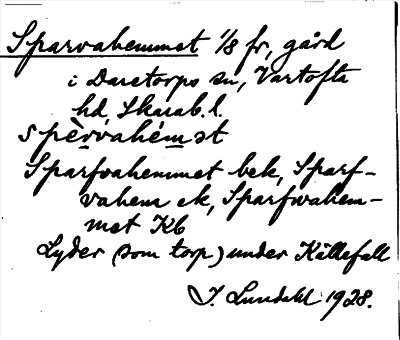 Sparvahemmet 1/8 fr, gård
i Daretorps sn, Vartofta
hd, Skarab. l.
spèrvahèmət
Sparfvahemmet bek, Sparf-
vahem ek, Sparfwahem-
met Kb
Lyder (som torp) under Källefall
I. Lundahl 1928.